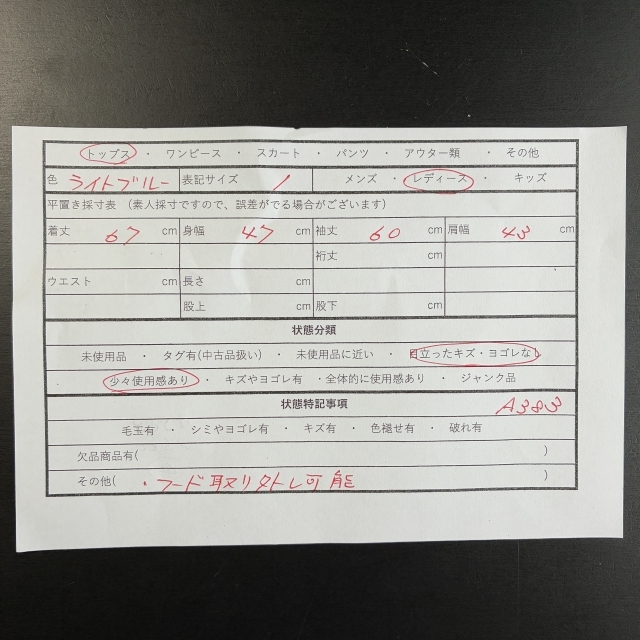 トップス ・ ワンピース ・ スカート ・ パンツ ・ アウター類 ・ その他
色 ライトブルー 表記サイズ / メンズ ・ レディース ・ キッズ
平置き採寸表 (素人採寸ですので、誤差がでる場合がございます)
着丈 67 cm 身幅 47 cm 袖丈 60 cm 肩幅 43 cm
裄丈 cm
ウエスト cm 長さ cm
股上 cm 股下 cm
状態分類
未使用品 ・ タグ有(中古品扱い) ・ 未使用品に近い ・ 目立ったキズ・ヨゴレなし
少々使用感あり ・ キズやヨゴレ有 ・全体的に使用感あり ・ ジャンク品
状態特記事項 A383
毛玉有 ・ シミやヨゴレ有 ・ キズ有 ・ 色褪せ有 ・ 破れ有
欠品商品有( )
その他( ・フード取り外し可能 )